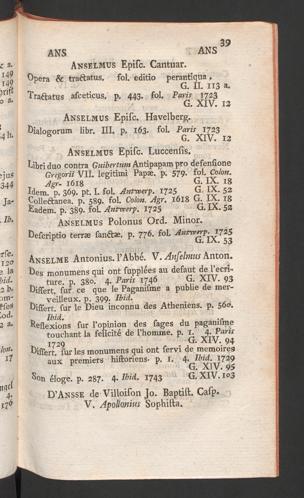 39
ANS ANS
ANSELMUS Episc. Cantuar.
Opera & tractatus. fol. editio perantiqua,
G. II. 113 a.
Tractatus asceticus. p. 443. fol. Paris 1723
G. XIV. 12
ANSELMUS Episc. Havelberg.
Dialogorum libr. III. p. 163. fol. Paris 1723
G. XIV. 12
ANSELMUS Episc. Luccensis.
Libri duo contra Guibertum Antipapam pro defensione
Gregorii VII. legitimi Papæ. p. 579. fol. Colon.
Agr. 1618 G. IX. 18
Idem. p. 369. pt. I. fol. Antwerp. 1725 G. IX. 52
Collectanea. p. 589. fol. Colon. Agr. 1618 G. IX. 18
Eadem. p. 389. fol. Antwerp. 1725 G. IX. 52
ANSELMUS Polonus Ord. Minor.
Descriptio terræ sanctæ. p. 776. fol. Antwerp. 1725
G. IX. 53
ANSELME Antonius. l'Abbé. V. Anselmus Anton.
Des monumens qui ont supplées au defaut de l'ecri-
ture. p. 380. 4. Paris 1746 G. XIV. 93
Dissert. sur ce que le Paganisme a publie de mer-
veilleux. p. 399. Ibid.
Dissert. sur le Dieu inconnu des Atheniens. p. 560.
Ibid.
Reflexions sur l'opinion des sages du paganisme
touchant la felicité de l'homme. p. 1. 4. Paris
1729 G. XIV. 94
Dissert. sur les monumens qui ont servi de memoires
aux premiers historiens. p. 1. 4. Ibid. 1729
G. XIV. 95
Son éloge. p. 287. 4. Ibid. 1743 G. XIV. 103
D'ANSSE de Villoison Jo. Baptist. Casp.
V. Apollonius Sophista.